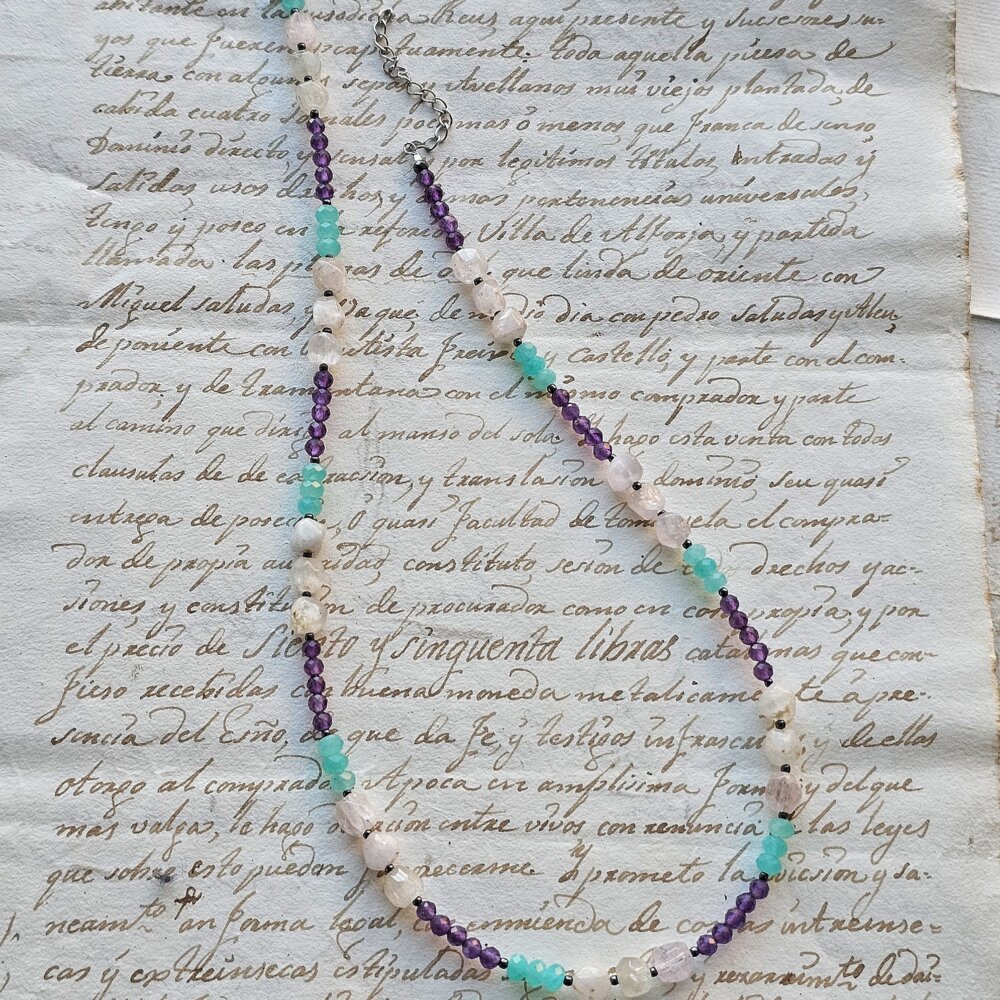 abitante en la susodicha Reus, aqui presente y suscesores su-
yos que fueren perpetuamente. toda aquella piesa de
tierra con algunas sepas y Avellanos mui viejos plantada, de
cabida cuatro jornales poco mas ó menos, que franca de senso
Dominio directo, y pensal por legitimos titulos, entradas y
salidas, usos drechos, y demas pertenencias universales,
tengo y poseo en el referido Villa de Alforja, y partida
llamada las de que linda de oriente con
Miguel saludas y Vaqué, de medio dia con pedro saludas y Aleu,
de poniente con Bautista y Castelló, y parte con el com-
prador, y de tramontana con el mismo comprador y parte
al camino que dirige al manso del sola. hago esta venta con todas
clausulas de de estracción, y translasion dominio, seu quasi
entrega de posecion, ó quasi facultad de tomarsela el compra-
dor de propia autoridad, constituto, sesion de drechos y ac-
siones, y constitusion de procurador como en cosa propia, y por
el precio de siento y sinquenta libras catalanas que con-
fieso recebidas con buena moneda metalicamente á pre-
sencia del Esño, de que da fe, y testigos infrascritos y de ellas
otorgo al comprador Apoca en amplisima forma, y del que
mas valga, le hago donacion entre vivos, con renuncia á las leyes
que sobre esto puedan favorecerme. Y prometo la eviccion y sa-
neamto. en forma legal, con enmienda de costas intrense-
cas y extrinsecas estipuladas y resarcimto. de dai-